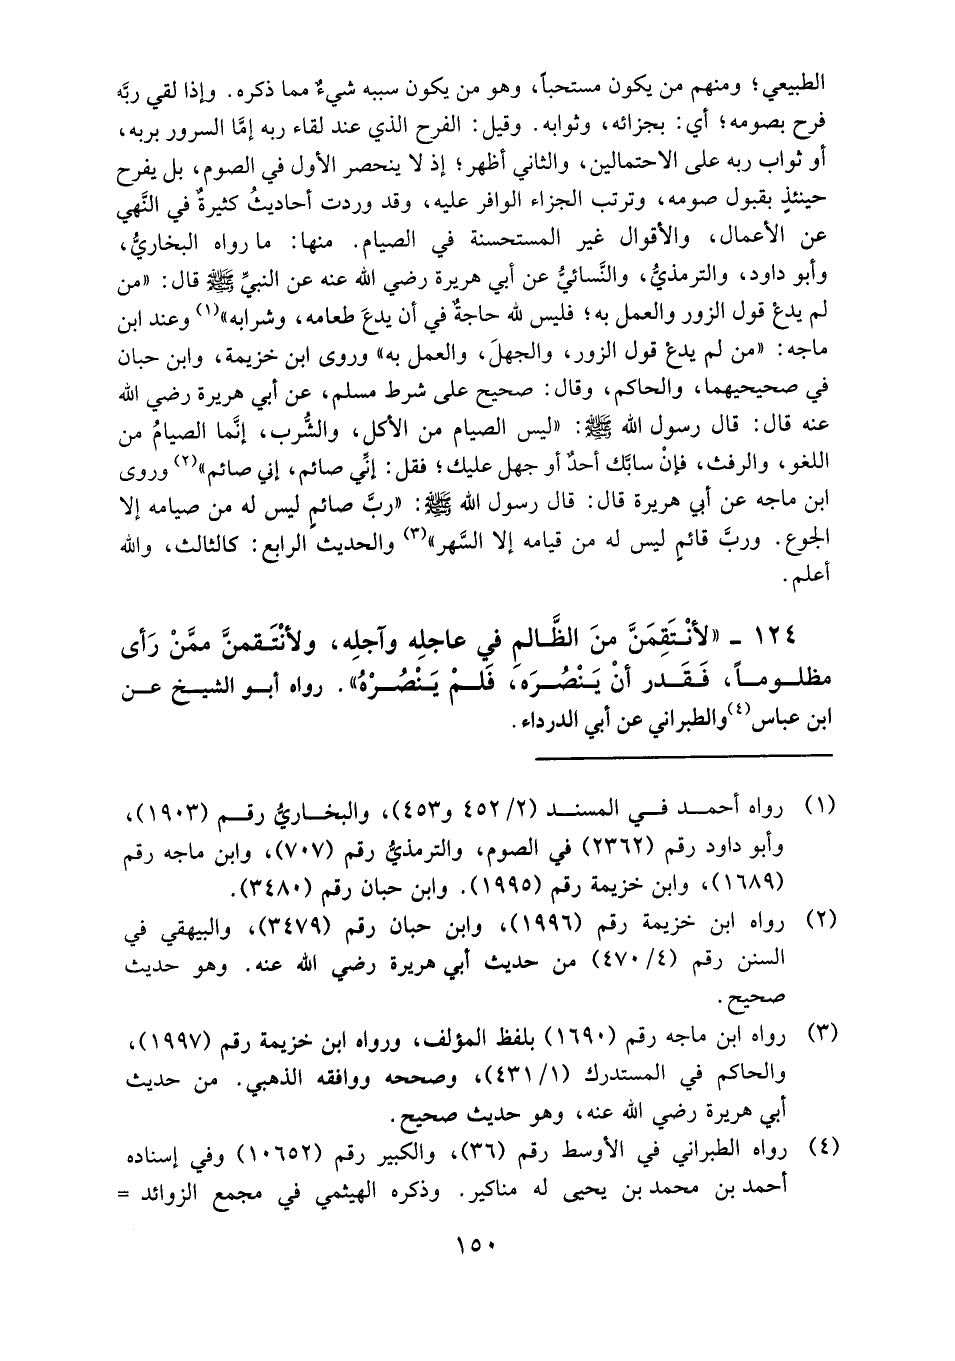 الطبيعي؛ ومنهم من يكون مستحباً، وهو من يكون سببه شيءٌ مما ذكره. وإذا لقي ربَّه
فرح بصومه؛ أي: بجزائه، وثوابه. وقيل: الفرح الذي عند لقاء ربه إمَّا السرور بربه،
أو ثواب ربه على الاحتمالين، والثاني أظهر؛ إذ لا ينحصر الأول في الصوم، بل يفرح
حينئذٍ بقبول صومه، وترتب الجزاء الوافر عليه، وقد وردت أحاديثُ كثيرةٌ في النَّهي
عن الأعمال، والأقوال غير المستحسنة في الصيام. منها: ما رواه البخاريُّ،
وأبو داود، والترمذيُّ، والنَّسائيُّ عن أبي هريرة رضي الله عنه عن النبيِّ ﷺ قال: «من
لم يدعْ قول الزور والعمل به؛ فليس لله حاجةٌ في أن يدعَ طعامه، وشرابه»(١) وعند ابن
ماجه: «من لم يدعْ قول الزور، والجهلَ، والعمل به» وروى ابن خزيمة، وابن حبان
في صحيحيهما، والحاكم، وقال: صحيح على شرط مسلم، عن أبي هريرة رضي الله
عنه قال: قال رسول الله ﷺ: «ليس الصيام من الأكل، والشُّرب، إنَّما الصيامُ من
اللغو، والرفث، فإنْ سابَّك أحدٌ أو جهل عليك؛ فقل: إنِّي صائم، إني صائم»(٢) وروى
ابن ماجه عن أبي هريرة قال: قال رسول الله ﷺ: «ربَّ صائمٍ ليس له من صيامه إلا
الجوع. وربَّ قائمٍ ليس له من قيامه إلا السَّهر»(٣) والحديث الرابع: كالثالث، والله
أعلم.
١٢٤ - «لأنْتَقِمَنَّ منَ الظَّالم في عاجلِه وآجلِه، ولأنْتَقمنَّ ممَّنْ رَأى
مظلوماً، فَقَدر أنْ يَنْصُرَهَ، فَلمْ يَنْصُرْهُ». رواه أبو الشيخ عن
ابن عباس(٤) والطبراني عن أبي الدرداء.
(١) رواه أحمد في المسند (٤٥٢/٢ و٤٥٣)، والبخاريُّ رقم (١٩٠٣)،
وأبو داود رقم (٢٣٦٢) في الصوم، والترمذيُّ رقم (٧٠٧)، وابن ماجه رقم
(١٦٨٩)، وابن خزيمة رقم (١٩٩٥). وابن حبان رقم (٣٤٨٠).
(٢) رواه ابن خزيمة رقم (١٩٩٦)، وابن حبان رقم (٣٤٧٩)، والبيهقي في
السنن رقم (٤٧٠/٤) من حديث أبي هريرة رضي الله عنه. وهو حديث
صحيح.
(٣) رواه ابن ماجه رقم (١٦٩٠) بلفظ المؤلف، ورواه ابن خزيمة رقم (١٩٩٧)،
والحاكم في المستدرك (٤٣١/١)، وصححه ووافقه الذهبي. من حديث
أبي هريرة رضي الله عنه، وهو حديث صحيح.
(٤) رواه الطبراني في الأوسط رقم (٣٦)، والكبير رقم (١٠٦٥٢) وفي إسناده
أحمد بن محمد بن يحيى له مناكير. وذكره الهيثمي في مجمع الزوائد =
١٥٠